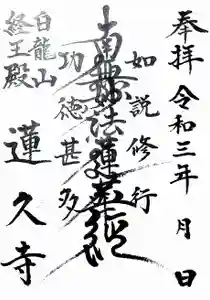 奉拝 令和三年 月 日
如説修行
南無妙法蓮華経
功徳甚多
白龍山
経王殿
蓮久寺